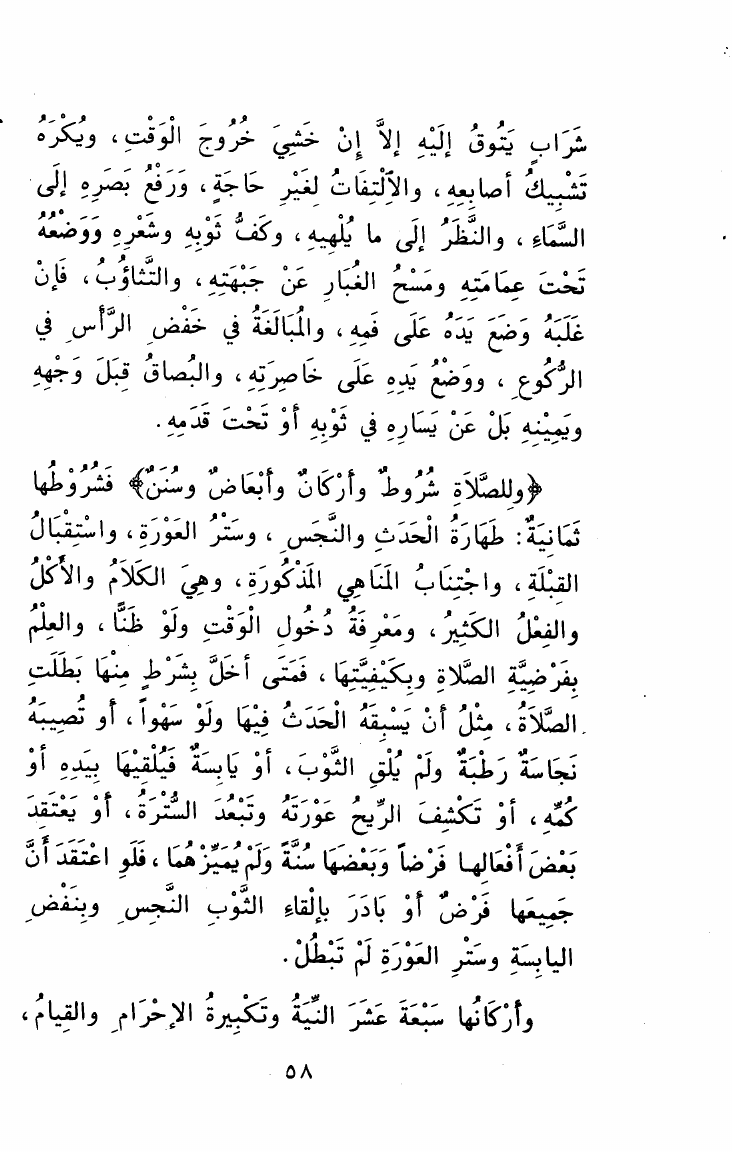 شَرَابٍ يَتُوقُ إلَيْهِ إلاَّ إِنْ خَشِيَ خُرُوجَ الْوَقْتِ، ويُكْرَهُ
تَشْبِيكُ أصابِعِهِ، والاِلْتِفَاتُ لِغَيْرِ حَاجَةٍ، وَرَفْعُ بَصَرِهِ إلَى
السَّمَاءِ، والنَّظَرُ إلَى ما يُلْهِيهِ، وكَفُّ ثَوْبِهِ وشَعْرِهِ وَوَضْعُهُ
تَحْتَ عِمَامَتِهِ ومَسْحُ الغُبَارِ عَنْ جَبْهَتِهِ، والتَّثاؤُبُ، فَإنْ
غَلَبَهُ وَضَعَ يَدَهُ عَلَى فَمِهِ، والمُبَالَغَةُ في خَفْضِ الرَّأْسِ في
الرُّكُوعِ، ووَضْعُ يَدِهِ عَلَى خَاصِرَتِهِ، والبُصاقُ قِبَلَ وَجْهِهِ
ويَمِيْنِهِ بَلْ عَنْ يَسَارِهِ في ثَوْبِهِ أوْ تَحْتَ قَدَمِهِ.
﴿وللصَّلاَةِ شُرُوطٌ وأَرْكَانٌ وأَبْعَاضٌ وسُنَنٌ﴾ فَشُرُوْطُها
ثَمَانِيَةٌ: طَهَارَةُ الْحَدَثِ والنَّجَسِ، وسَتْرُ العَوْرَةِ، واسْتِقْبَالُ
القِبْلَةِ، واجْتِنَابُ المَنَاهِي المَذْكُورَةِ، وهِيَ الكَلاَمُ والأكْلُ
والفِعْلُ الكَثِيرُ، ومَعْرِفَةُ دُخُولِ الْوَقْتِ ولَوْ ظَنًّا، والعِلْمُ
بِفَرْضِيَّةِ الصَّلاةِ وبِكَيْفِيَّتِهَا، فَمَتَى أخَلَّ بِشَرْطٍ مِنْهَا بَطَلَتِ
الصَّلاَةُ، مِثْلُ أنْ يَسْبِقَهُ الْحَدَثُ فِيْهَا ولَوْ سَهْواً، أو تُصِيبَهُ
نَجَاسَةٌ رَطْبَةٌ ولَمْ يُلْقِ الثَّوْبَ، أوْ يَابِسَةٌ فَيُلْقِيْهَا بِيَدِهِ أوْ
كُمِّهِ، أوْ تَكْشِفَ الرِّيحُ عَوْرَتَهُ وتَبْعُدَ السُّتْرَةُ، أوْ يَعْتَقِدَ
بَعْضَ أفْعَالِهـا فَرْضاً وَبَعْضَهَا سُنَّةً وَلَمْ يُمَيِّزْهُمَا، فَلَوِ اعْتَقَدَ أنَّ
جَمِيعَها فَرْضٌ أوْ بَادَرَ بإلْقاءِ الثَّوْبِ النَّجِسِ وبِنَفْضِ
اليابِسَةِ وسَتْرِ العَوْرَةِ لَمْ تَبْطُلْ.
وأرْكَانُها سَبْعَةَ عَشَرَ النِّيَّةُ وتَكْبِيرةُ الإحْرَامِ والقِيامُ،
٥٨